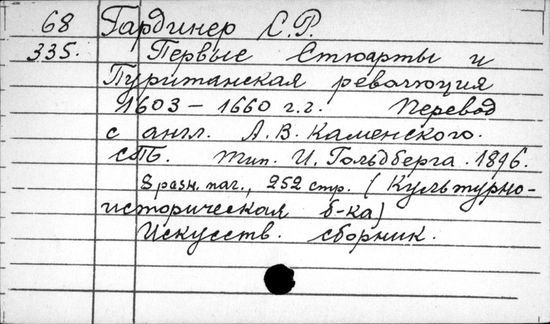 68 Гардинер С.Р.
335. Первые Стюарты и
Пуританская революция
1603 – 1660 г.г. Перевод
с англ. А.В. Каменского.
спб. тип. И. Гольдберга. 1896.
8 разн. паг., 252 стр. (Культурно-
историческая б-ка)
Искусств. сборник.